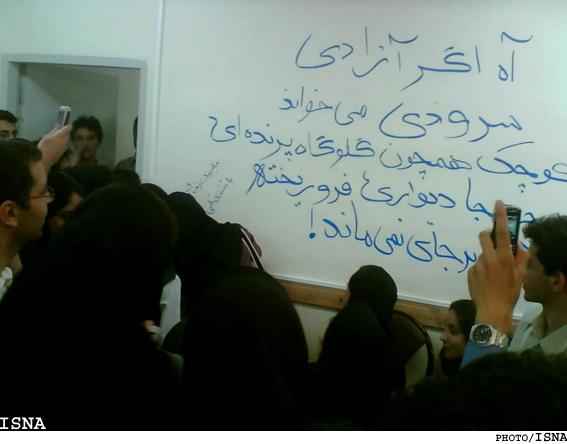 آه اگر آزادی
سرودی می‌خواند
کوچک همچون گلوگاه پرنده‌ای
دیواری فرو ریخته
بر جای نمی‌ماند!
ISNA
PHOTO/ISNA